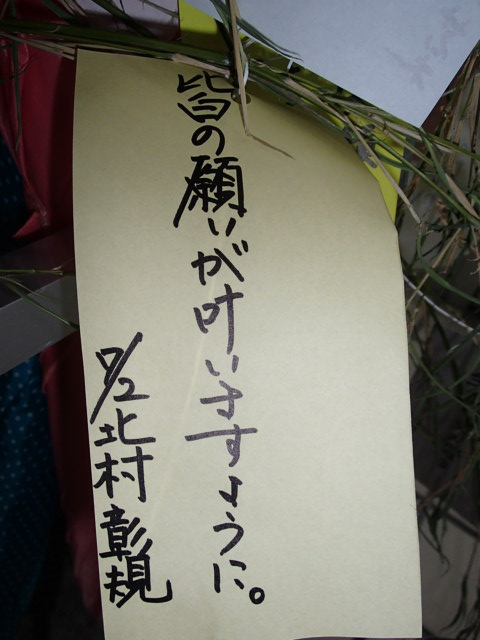 皆の願いが叶いますように。
7/2 北村彰規